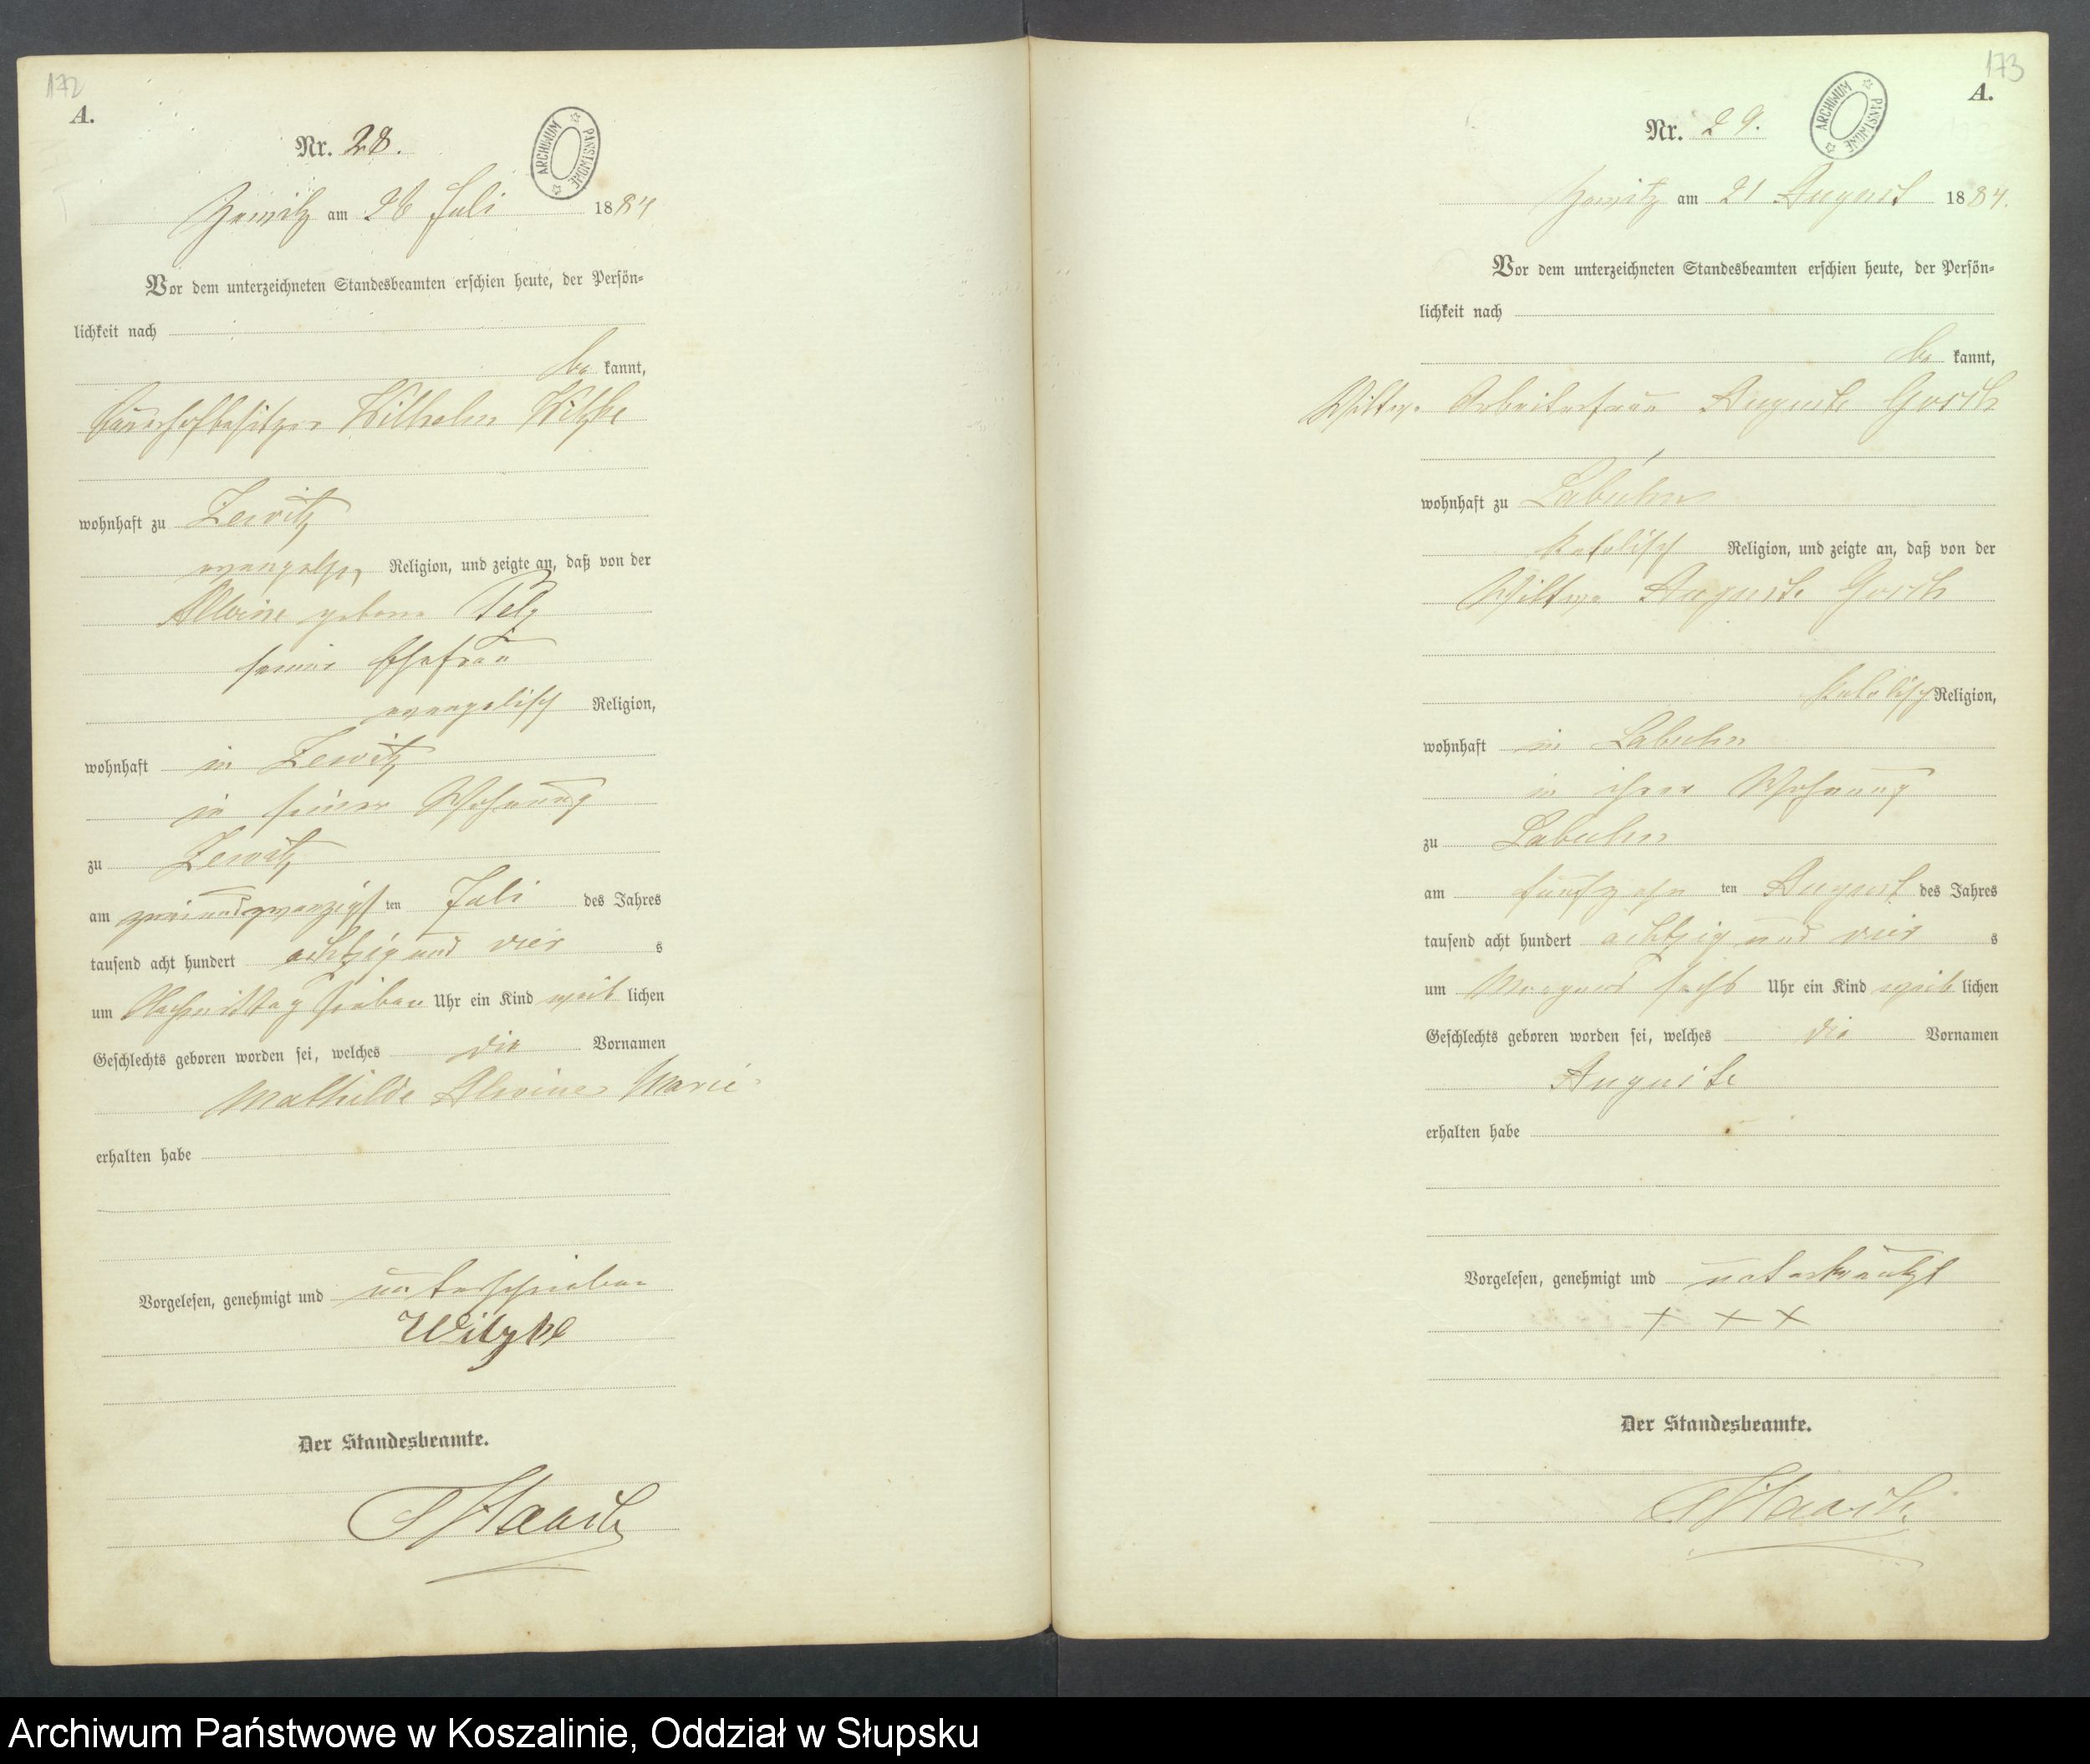 172
A.
Nr. 28.
ARCHIWUM PAŃSTWOWE
Zewitz am 26 Juli 1884
Vor dem unterzeichneten Standesbeamten erschien heute, der Persön-
lichkeit nach
be kannt,
Bauerhofbesitzer Wilhelm Witzke
wohnhaft zu Zewitz
Religion, und zeigte an, daß von der
Alwine geborne Pelz
seiner Ehefrau
evangelisch Religion,
wohnhaft in Zewitz
in seiner Wohnung
zu Zewitz
am zweiundzwanzigst ten Juli des Jahres
tausend acht hundert achtzig und vier s
um Nachmittag sieben Uhr ein Kind weib lichen
Geschlechts geboren worden sei, welches die Vornamen
Mathilde Alwine Marie
erhalten habe
Vorgelesen, genehmigt und unterschrieben
Witzke
Der Standesbeamte.
173
A.
Nr. 29.
ARCHIWUM PAŃSTWOWE
Zewitz am 21 August 1884.
Vor dem unterzeichneten Standesbeamten erschien heute, der Persön-
lichkeit nach
be kannt,
Wittwe Arbeiterfrau Auguste
wohnhaft zu Labuhn
katolisch Religion, und zeigte an, daß von der
Wittwe Auguste
katolisch Religion,
wohnhaft in Labuhn
in ihrer Wohnung
zu Labuhn
am fünfzehn ten August des Jahres
tausend acht hundert achtzig und vier s
um Morgens sechs Uhr ein Kind weib lichen
Geschlechts geboren worden sei, welches die Vornamen
Auguste
erhalten habe
Vorgelesen, genehmigt und unterkreutzt
+ + +
Der Standesbeamte.
Archiwum Państwowe w Koszalinie, Oddział w Słupsku